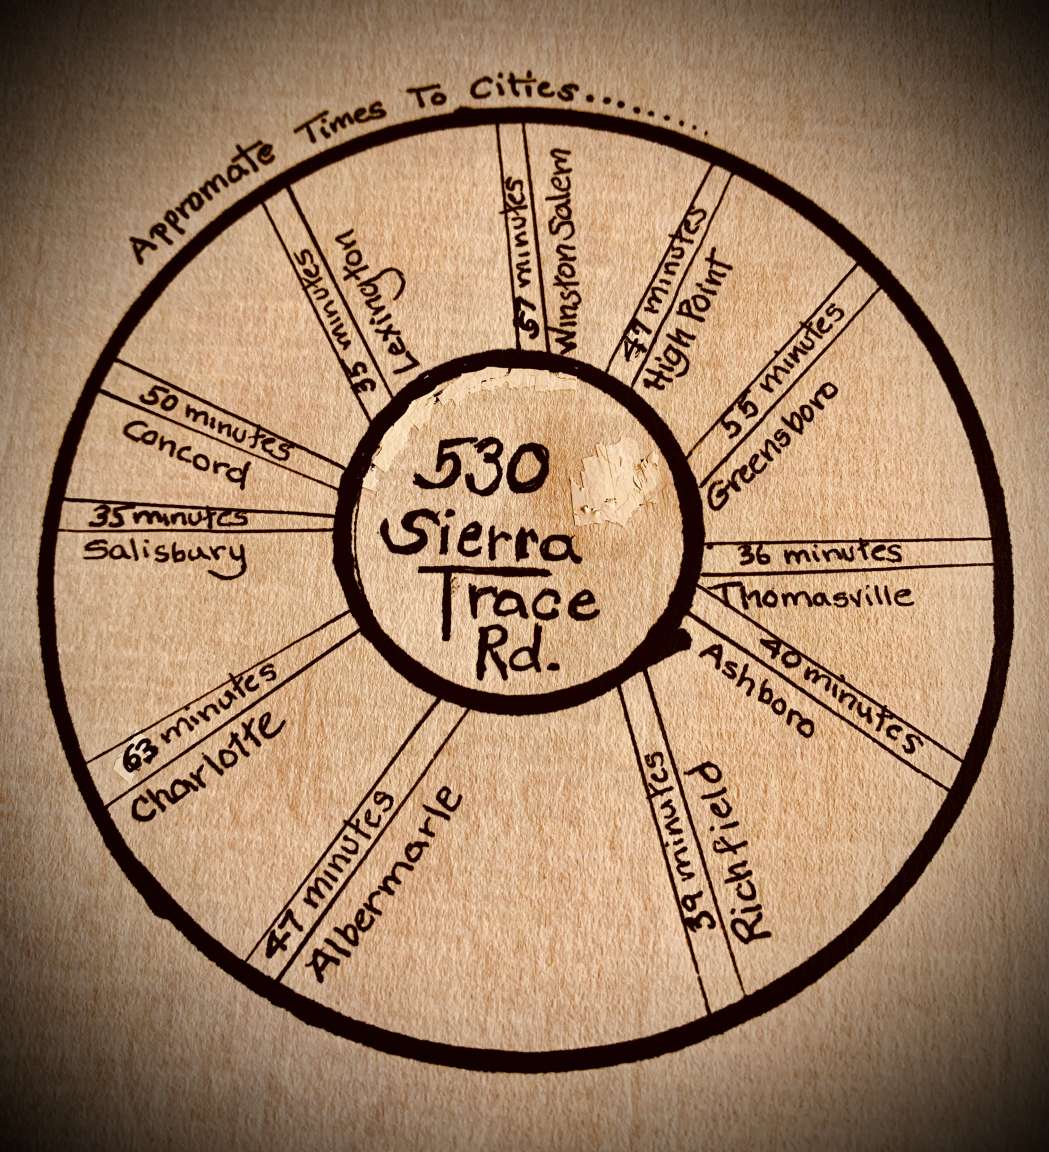 Appromate Times To Cities..........
57 minutes
Winston Salem
47 minutes
High Point
55 minutes
Greensboro
36 minutes
Thomasville
40 minutes
Ashboro
39 minutes
Richfield
47 minutes
Albermarle
63 minutes
Charlotte
35 minutes
Salisbury
50 minutes
Concord
35 minutes
Lexington
530
Sierra
Trace
Rd.